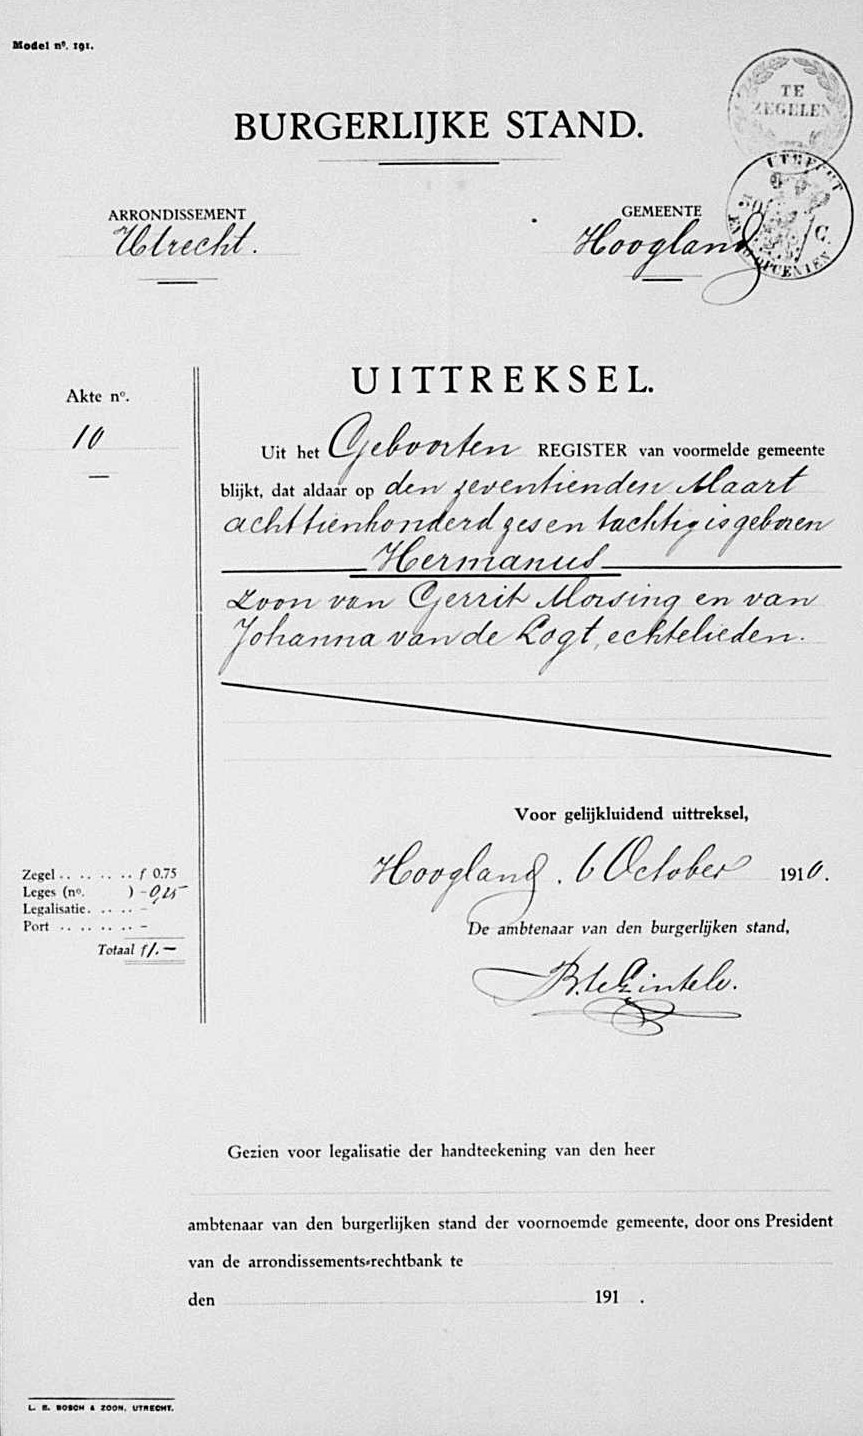 Model nº. 191.
TE
ZEGELEN
BURGERLIJKE STAND.
UTRECHT
50 C.
EN OPCENTEN
ARRONDISSEMENT
Utrecht.
GEMEENTE
Hoogland
UITTREKSEL.
Akte nº.
10
Uit het Geboorten REGISTER van voormelde gemeente
blijkt, dat aldaar op den zeventienden Maart
achttienhonderd zes en tachtig is geboren
Hermanus
zoon van Gerrit Morsing en van
Johanna van de Logt, echtelieden.
Voor gelijkluidend uittreksel,
Hoogland, 6 October 1910.
De ambtenaar van den burgerlijken stand,
Zegel .. .. .. .. f 0.75
Leges (nº. ) - 0,25
Legalisatie. .. .. -
Port .. .. .. .. -
Totaal f 1.—
Gezien voor legalisatie der handteekening van den heer
ambtenaar van den burgerlijken stand der voornoemde gemeente, door ons President
van de arrondissements-rechtbank te
den 191 .
L. E. BOSCH & ZOON, UTRECHT.